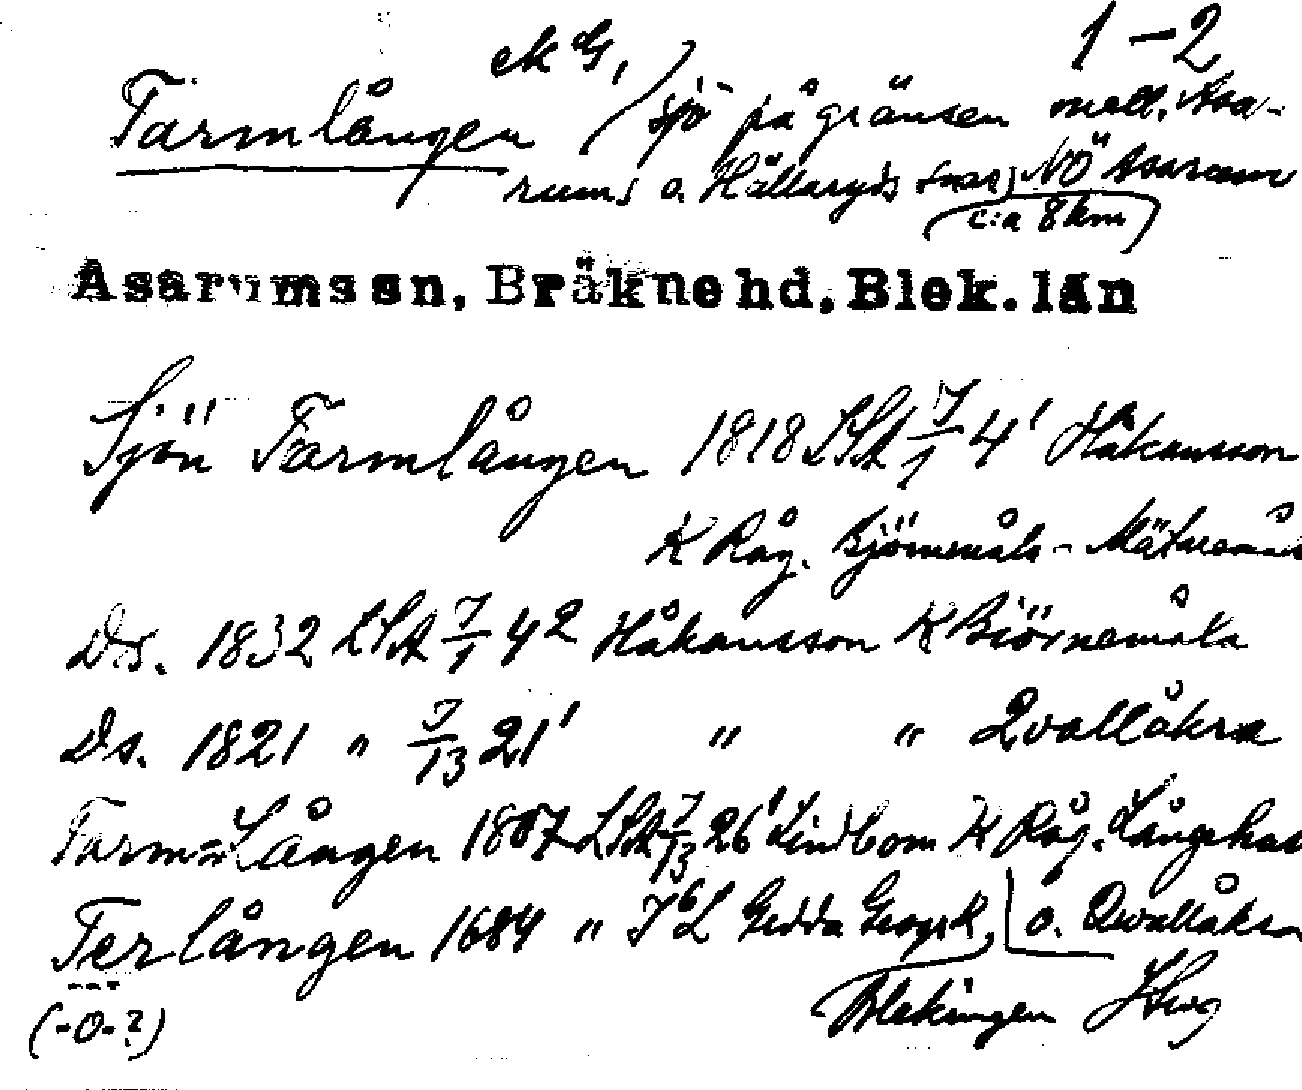 1-2
Tarmlången sjö på gränsen mell. Asa-
rums o. Hällaryds snar, NÖ Asarum
(c:a 8 km)
Asarums sn, Bräkne hd, Blek. län
Sjön Tarmlången 1818 LSA J/1 4' Håkansson
K Råg. Björnemåla -
Ds. 1832 LSA J/1 4 2 Håkansson K Biörnemåla
Ds. 1821 " J/13 21' " " Qvallåkra
Tarm=Lången 1807 LSA J/13 26' Lindbom K Råg. Långehal
Terlången 1684 " J 6 L Gedda Geogr K, o. Qvallåkra
(-o-?) Blekingen